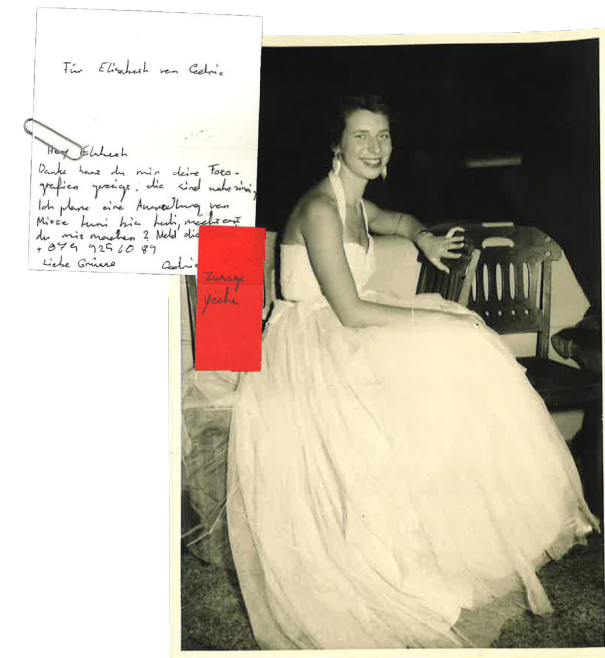 Für Elisabeth von Cedric
Hoy Elisabeth
Danke hast du mir deine Foto-
grafien gezeigt, die sind wahnsinnig
Ich plane eine Ausstellung von
Mitte Juni bis Juli, möchtest
du mit machen? Meld dich
+ 079 925 60 89
Liebe Grüsse Cedric
Zusage
yeaha